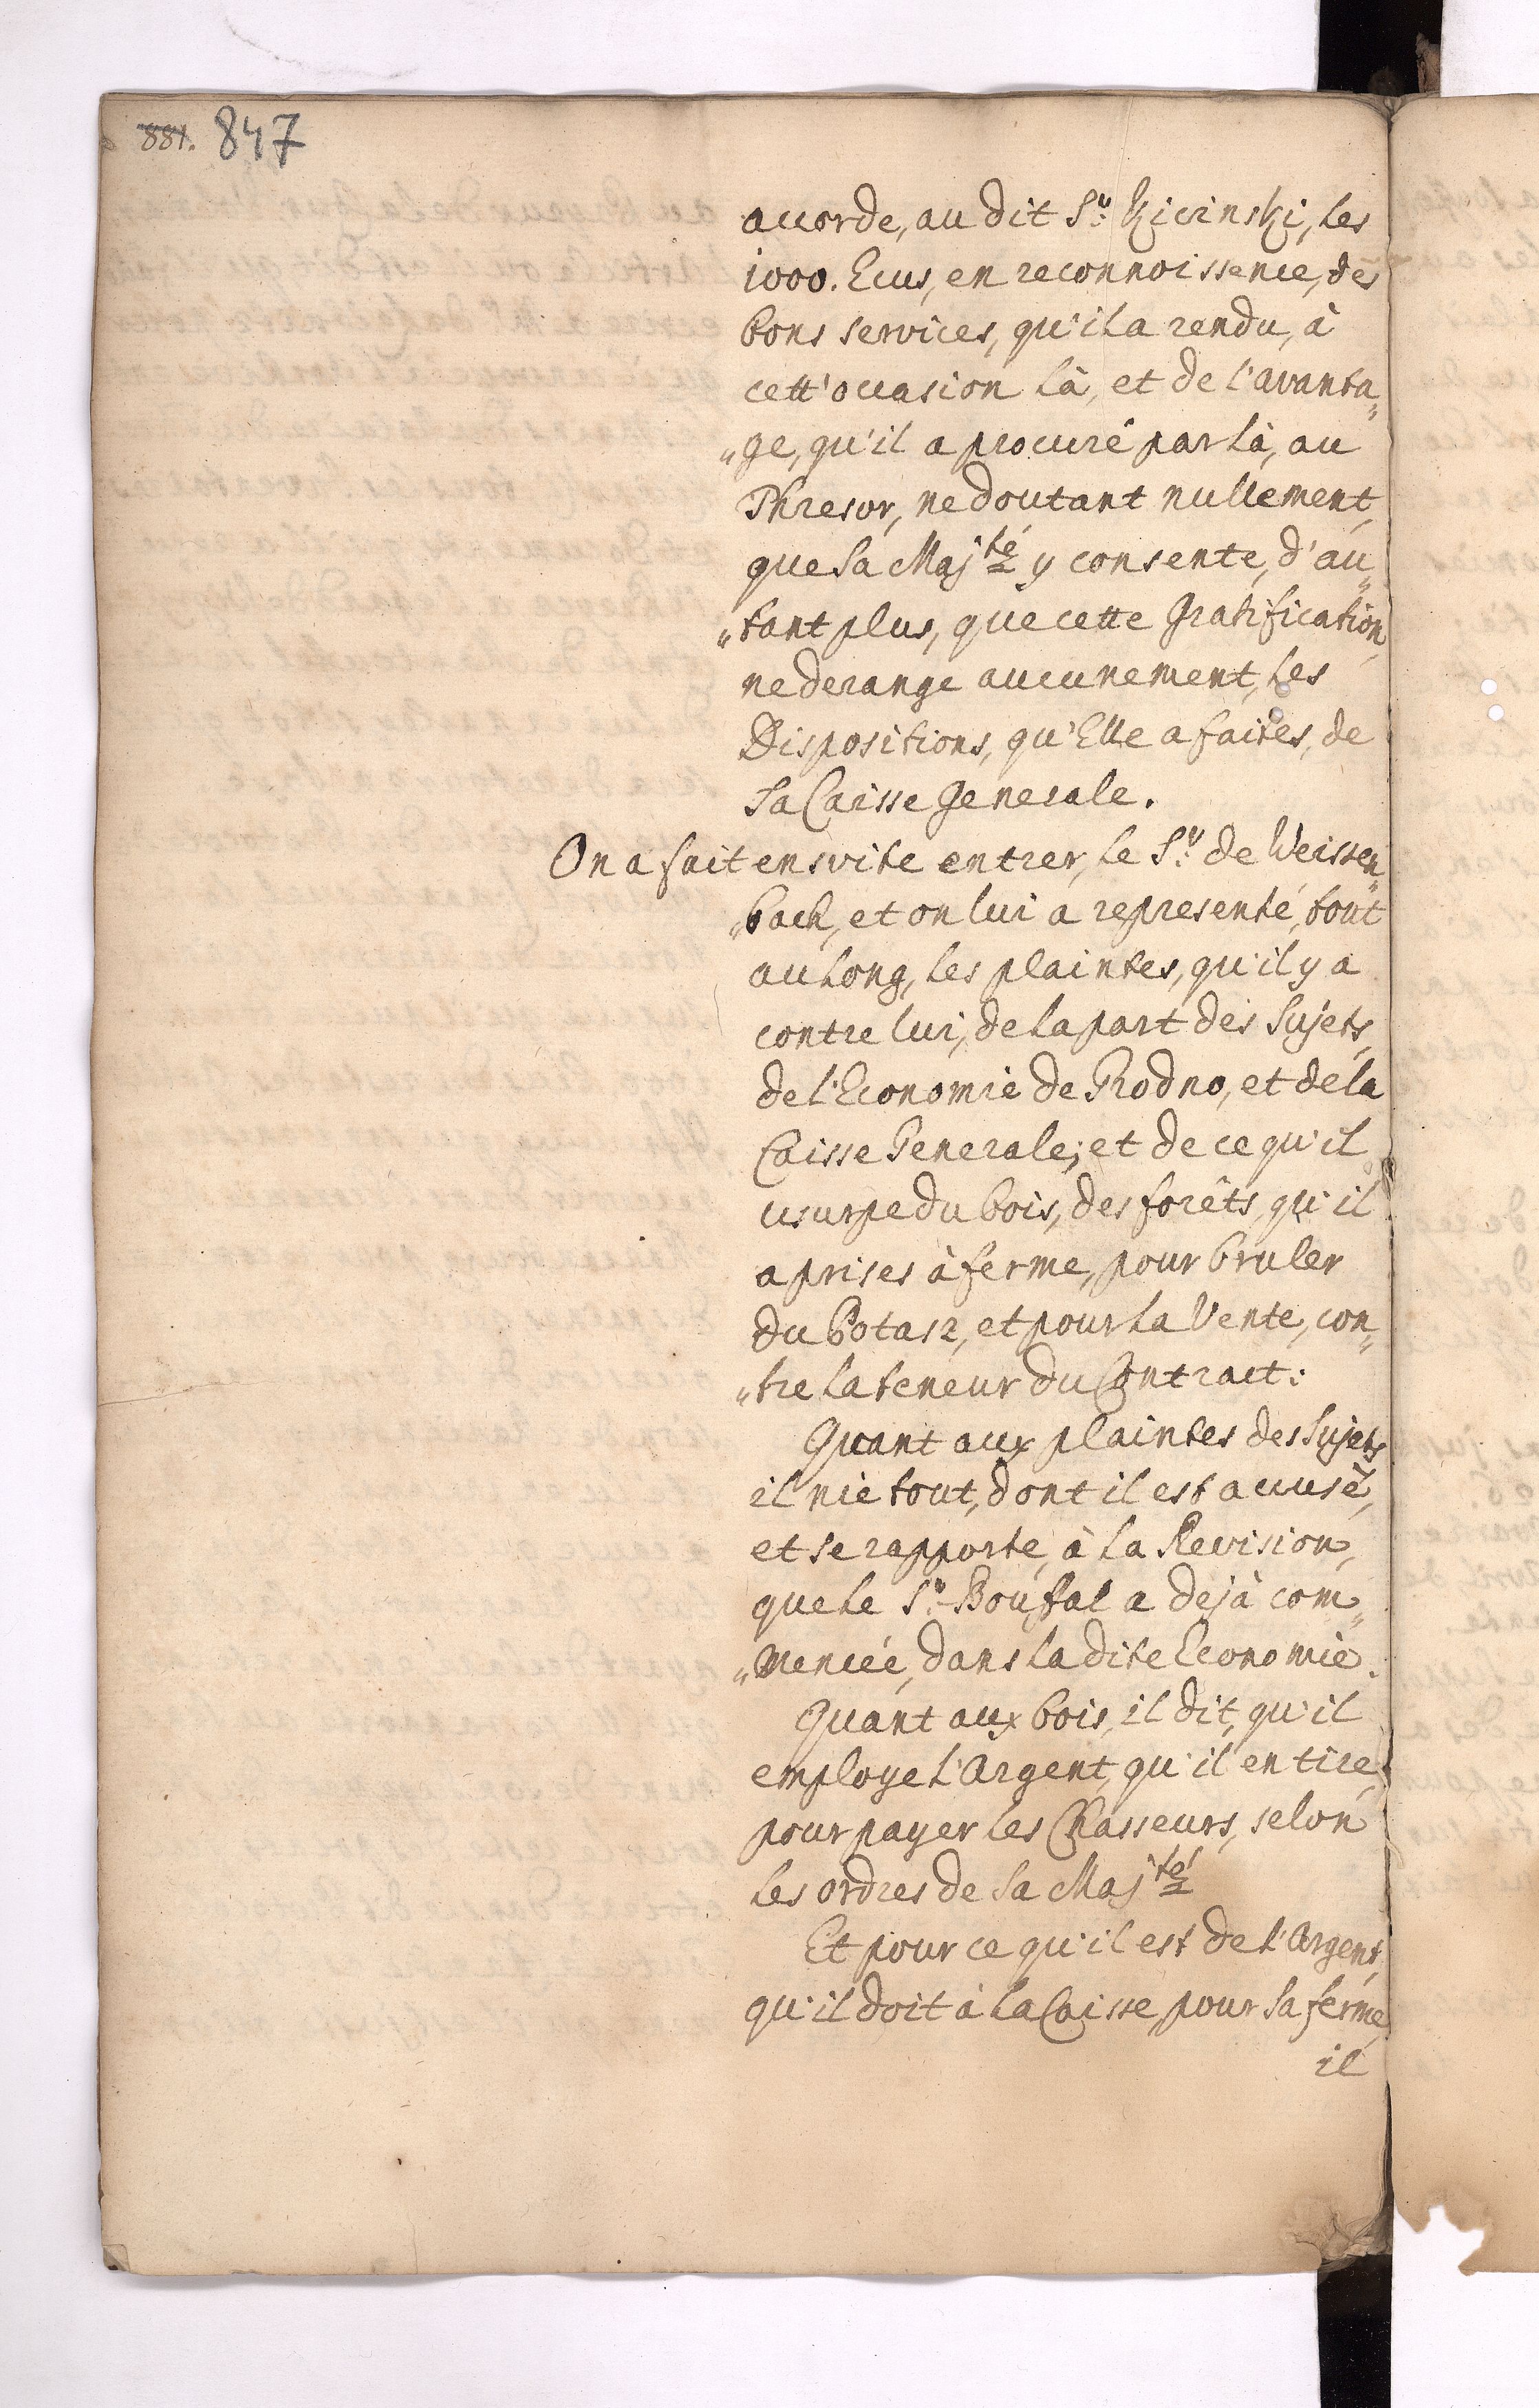 881. 847
accorde, au dit Sr: Kicinski, les
1000. Ecus, en reconnoissence, des
bons services, qu'il a rendu, à
cett' occasion là, et de l'avanta„
„ge, qu'il a procuré par là, au
Thresor, ne doutant nullement,
que Sa Maj:té y consente, d'au„
„tant plus, que cette Gratification,
ne derange aucunement, les
Dispositions, qu'Elle a faites, de
Sa Caisse Generale.
On a fait ensvite entrer, le Sr: de Weissen„
„bach, et on lui a representé, tout
au long, les plaintes, qu'il y a
contre lui, de la part des Sujets,
de l'Economie de Grodno, et de la
Caisse Generale; et de ce qu'il
usurpe du bois, des forêts, qu'il
a prises à ferme, pour bruler
du Potasz, et pour la Vente, con„
„tre la teneur du Contract:
Quant aux plaintes des Sujets
il nie tout, dont il est accusé,
et se rapporte, à la Revision,
que le Sr: Boufal a dejà com„
„mencée, dans la dite Economie.
Quant aux bois, il dit, qu'il
employe l'Argent, qu'il en tire,
pour payer les Chasseurs, selon
les ordres de Sa Maj:té
Et pour ce qu'il est de l'Argent,
qu'il doit à la Caisse, pour sa ferme,
il